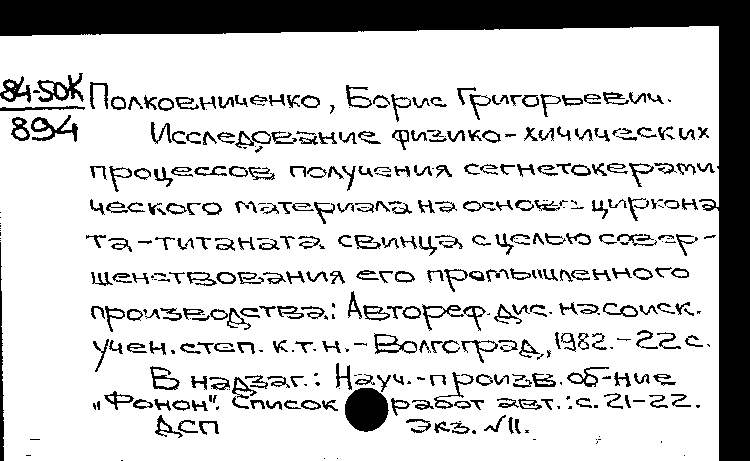 84-50К Полковниченко, Борис Григорьевич.
894 Исследование физико-хичических
процессов получения сегнетокерами
ческого материала на основе циркона
та-титаната свинца с целью совер-
шенствования его промышленного
производства: Автореф. дис. на соиск.
учен. степ. к.т.н. - Волгоград, 1982. - 22 с.
В надзаг.: Науч.-произв. об-ние
„Фонон". Список работ авт.: с. 21-22.
ДСП Экз. N11.